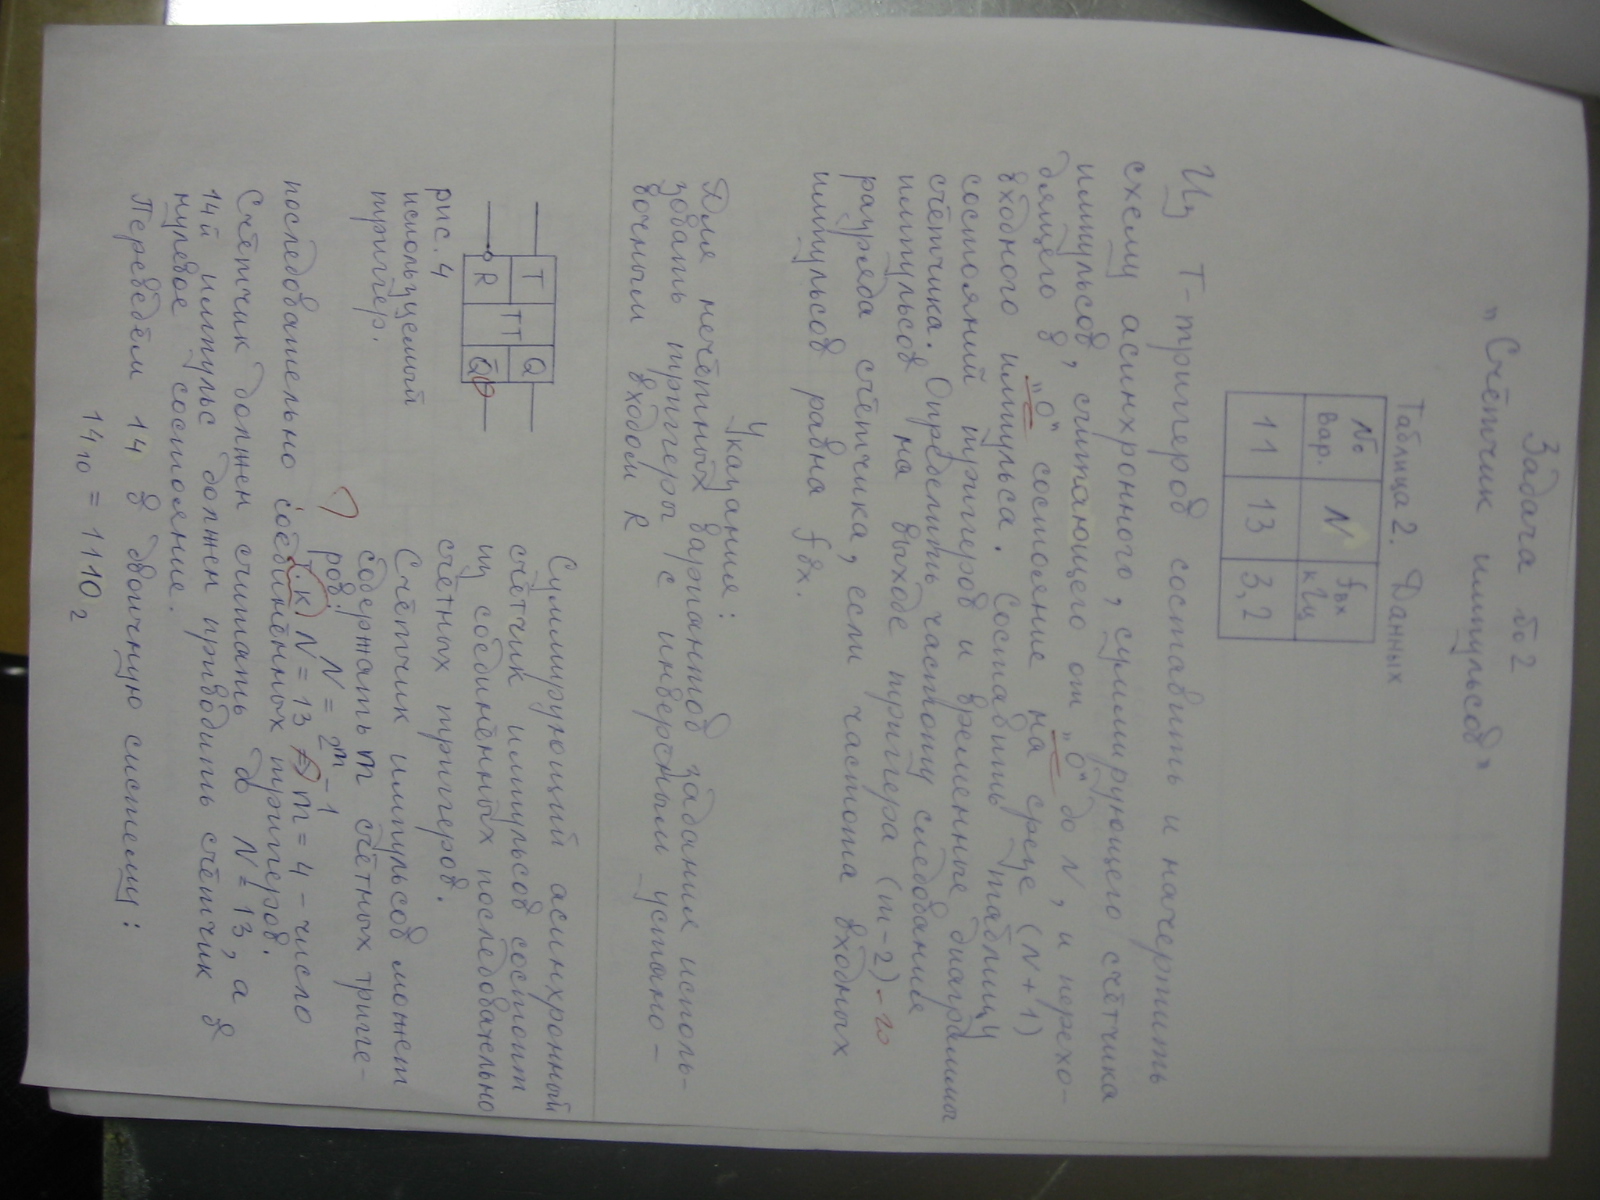 Задача №2
„Счётчик импульсов"
Таблица 2. Данных
№ Вар. N fвх кГц
11 13 3,2
Из Т-триггеров составить и начертить
схему асинхронного, суммирующего счётчика
импульсов, считающего от „0" до N, и перехо-
дящего в „0" состояние на срезе (N+1)
входного импульса. Составить таблицу
состояний триггеров и временные диаграммы
счётчика. Определить частоту следования
импульсов на выходе триггера (m-2)-го
разряда счётчика, если частота входных
импульсов равна fвх.
Указания:
Для нечётных вариантов задания исполь-
зовать триггеры с инверсным устано-
вочным входом R
T TT Q
R Q̅
рис. 4
используемый
триггер.
Суммирующий асинхронный
счётчик импульсов состоит
из соединённых последовательно
счётных триггеров.
Счётчик импульсов может
содержать m счётных тригге-
ров: N = 2^m -1
т.к. N = 13 ⇒ m = 4 - число
последовательно соединённых триггеров.
Счётчик должен считать до N = 13, а в
14й импульс должен приводить счётчик в
нулевое состояние.
Переведём 14 в двоичную систему:
14₁₀ = 1110₂